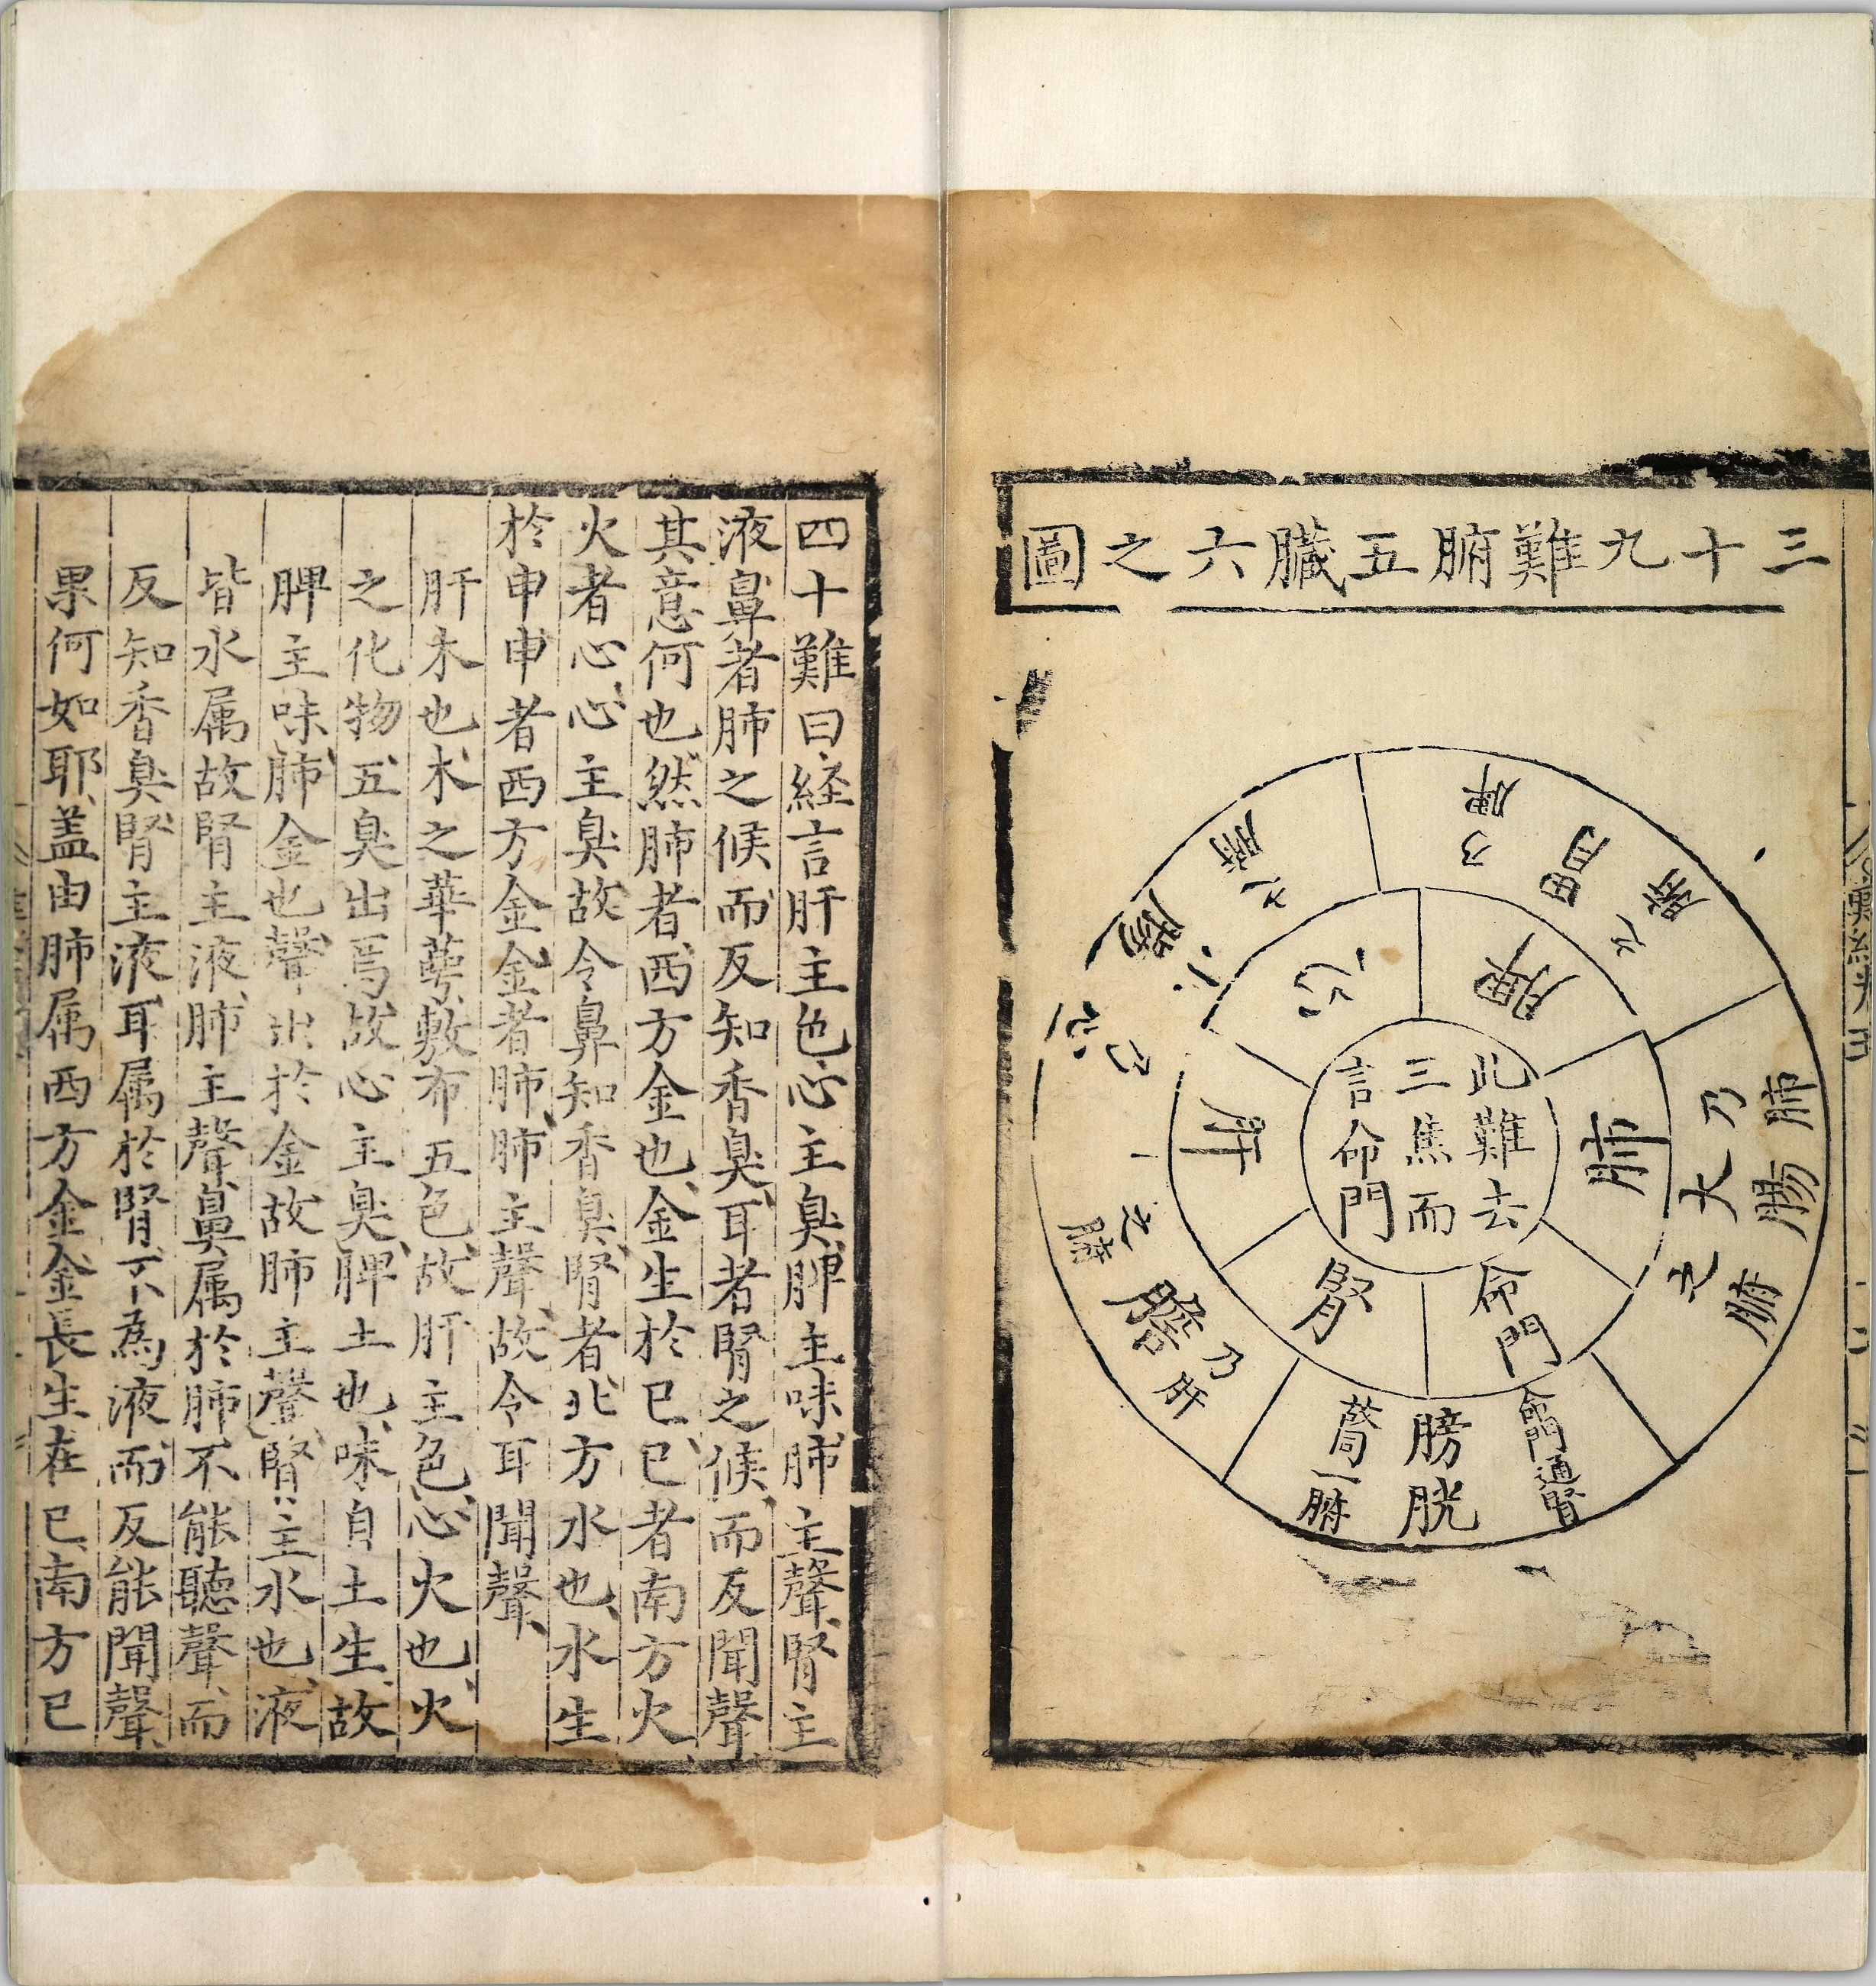 三十九難腑五臟六之圖
此難去
三焦而
言命門
脾
心
肝
腎
命門
肺
胃乃脾之腑
小腸乃心之腑
膽乃肝之腑
膀胱
命門通腎
為一腑
大腸乃肺之腑
四十難曰経言肝主色心主臭脾主味肺主聲腎主
液鼻者肺之候而反知香臭耳者腎之候而反聞聲
其意何也然肺者西方金也金生於巳巳者南方火
火者心心主臭故令鼻知香臭腎者北方水也水生
於申申者西方金金者肺肺主聲故令耳聞聲
肝木也木之華萼敷布五色故肝主色心火也火
之化物五臭出焉故心主臭脾土也味自土生故
脾主味肺金也聲出於金故肺主聲腎主水也液
皆水属故腎主液肺主聲鼻属於肺不能聽聲而
反知香臭腎主液耳属於腎不為液而反能聞聲
果何如耶盖由肺属西方金金長生在巳南方巳